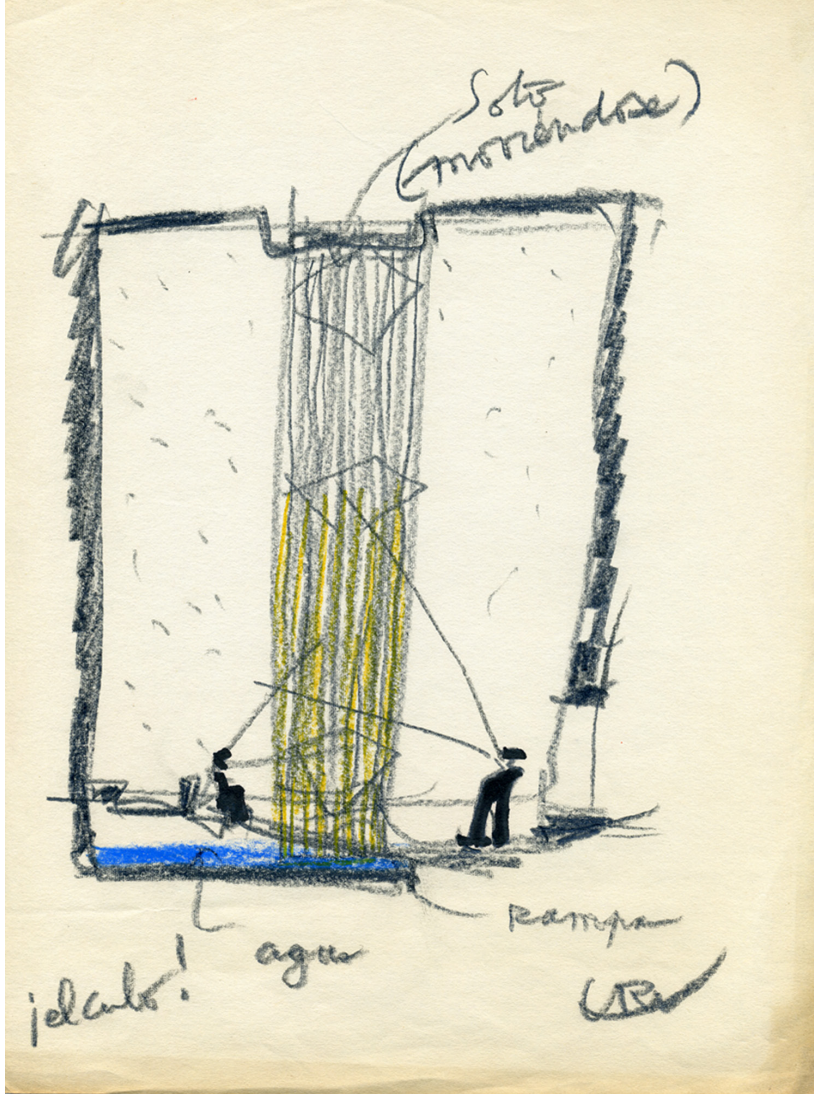 Soto
(moviéndose)
rampa
agua
¡el cubo!